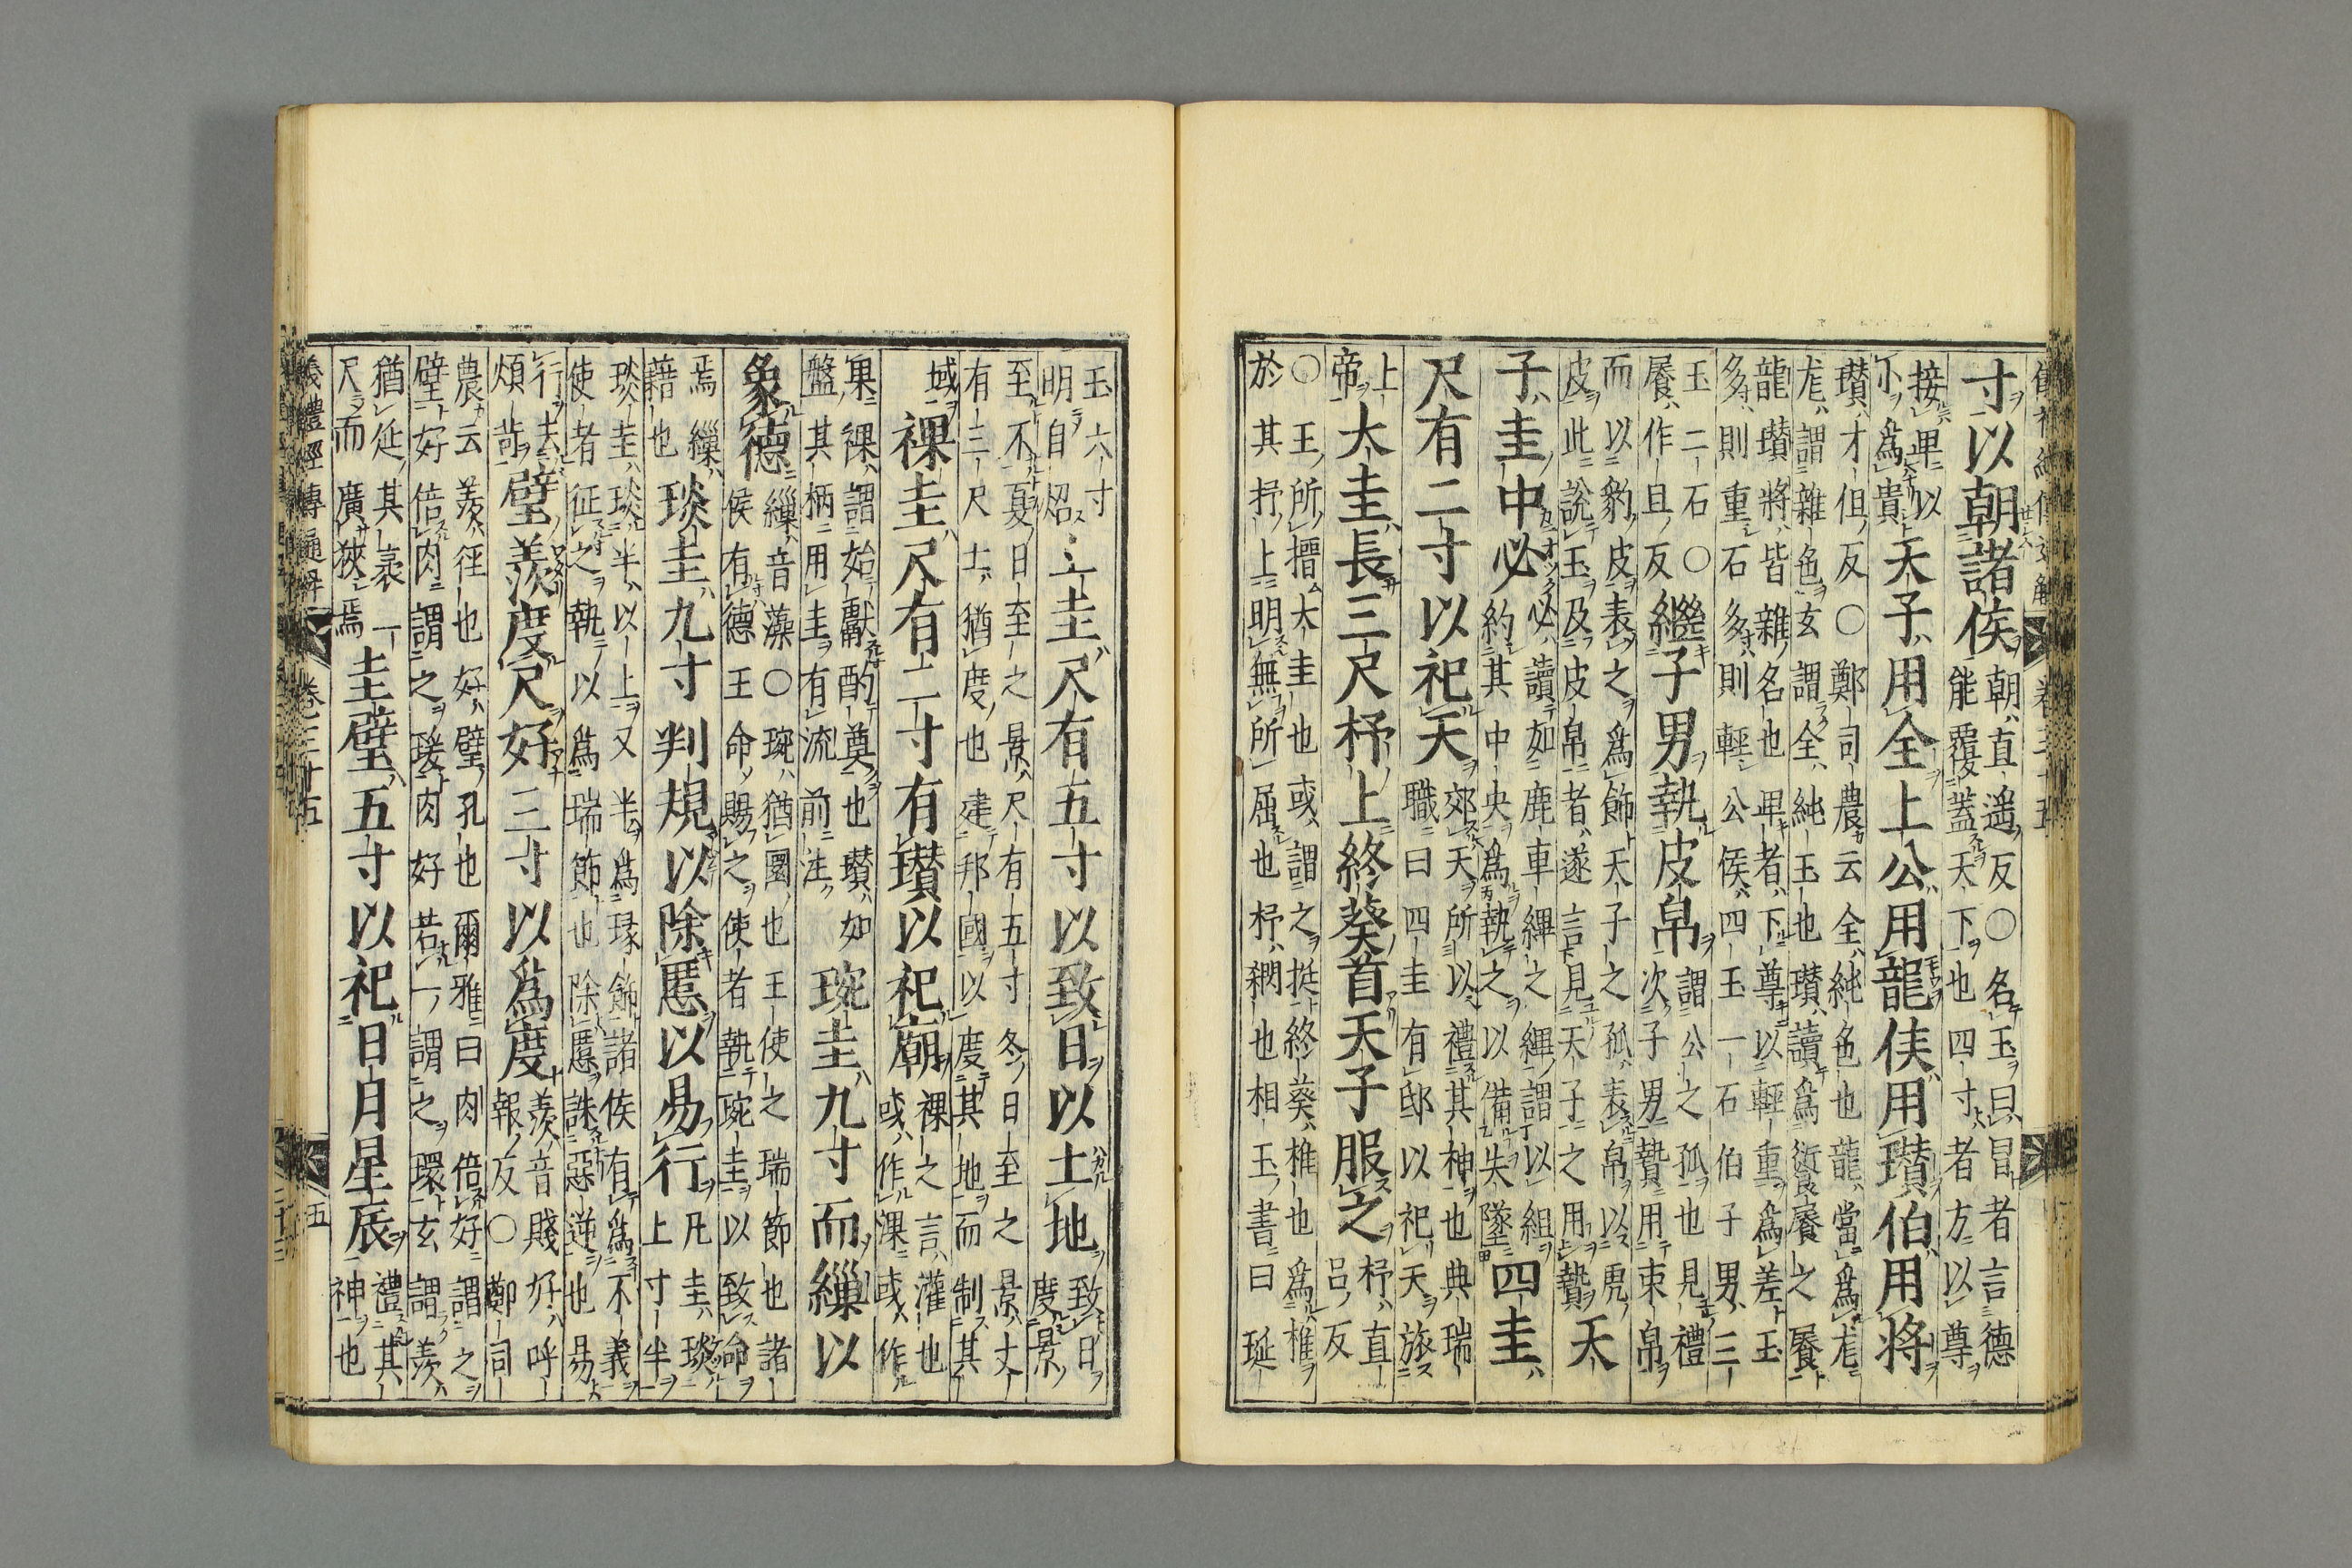 儀禮經傳通解 卷三十五
寸以朝諸侯
朝直遙反○名玉曰冒者言德
能覆蓋天下也四寸者方以尊
接卑以
小爲貴
天子用全上公用龍侯用瓚伯用將
瓚才但反○鄭司農云全純色也龍當爲尨
尨謂雜色玄謂全純玉也瓚讀爲
龍瓚將皆雜名也卑者下尊以輕重爲差玉
多則重石多則輕公侯四玉一石伯子男三
玉二石○
作且反
繼子男執皮帛
謂公之孤也見禮
次子男贄用束帛
而以豹皮表之爲飾天子之孤表帛以虎
皮此說玉及皮帛者遂言見天子之用贄
天
子圭中必
必讀如鹿車縪之縪謂以組
約其中央爲執之以備失墜
四圭
尺有二寸以祀天
郊天所以禮其神也典瑞
職曰四圭有邸以祀天旅
上
帝
大圭長三尺杼上終葵首天子服之
杼直
呂反
○王所搢大圭也或謂之挺終葵椎也爲椎
於其杼上明無所屈也杼殺也相玉書曰珽
玉六寸
明自炤
土圭尺有五寸以致日以土地
致日
度景
至不夏日至之景尺有五寸冬日至之景丈
有三尺土猶度也建邦國以度其地而制其
域
祼圭尺有二寸有瓚以祀廟
祼之言灌也
或作淉或作
果祼謂始獻酌奠也瓚如
盤其柄用圭有流前注
琬圭九寸而繅以
象德
繅音藻○琬猶圜也王使之瑞節也諸
侯有德王命賜之使者執琬圭以致命
焉繅
藉也
琰圭九寸判規以除慝以易行
凡圭琰
上寸半
琰圭琰半以上又半爲瑑飾諸侯有爲不義
使者征之執以爲瑞節也除慝誅惡逆也易
行去
煩苛
璧羨度尺好三寸以爲度
羨音賤好呼
報反○鄭司
農云羨徑也好璧孔也爾雅曰肉倍好謂之
璧好倍肉謂之瑗肉好若一謂之環玄謂羨
猶延其袤一
尺而廣狹焉
圭璧五寸以祀日月星辰
禮其
神也
儀禮經傳通解 卷三十五 五